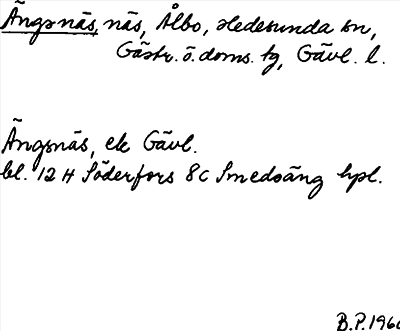 Ängsnäs, näs, Ålbo, Hedesunda sn,
Gästr. ö. doms. tg, Gävl. l.
Ängsnäs, ek Gävl.
bl. 12 H Söderfors 8 C Smedsäng hpl.
B.P. 1960